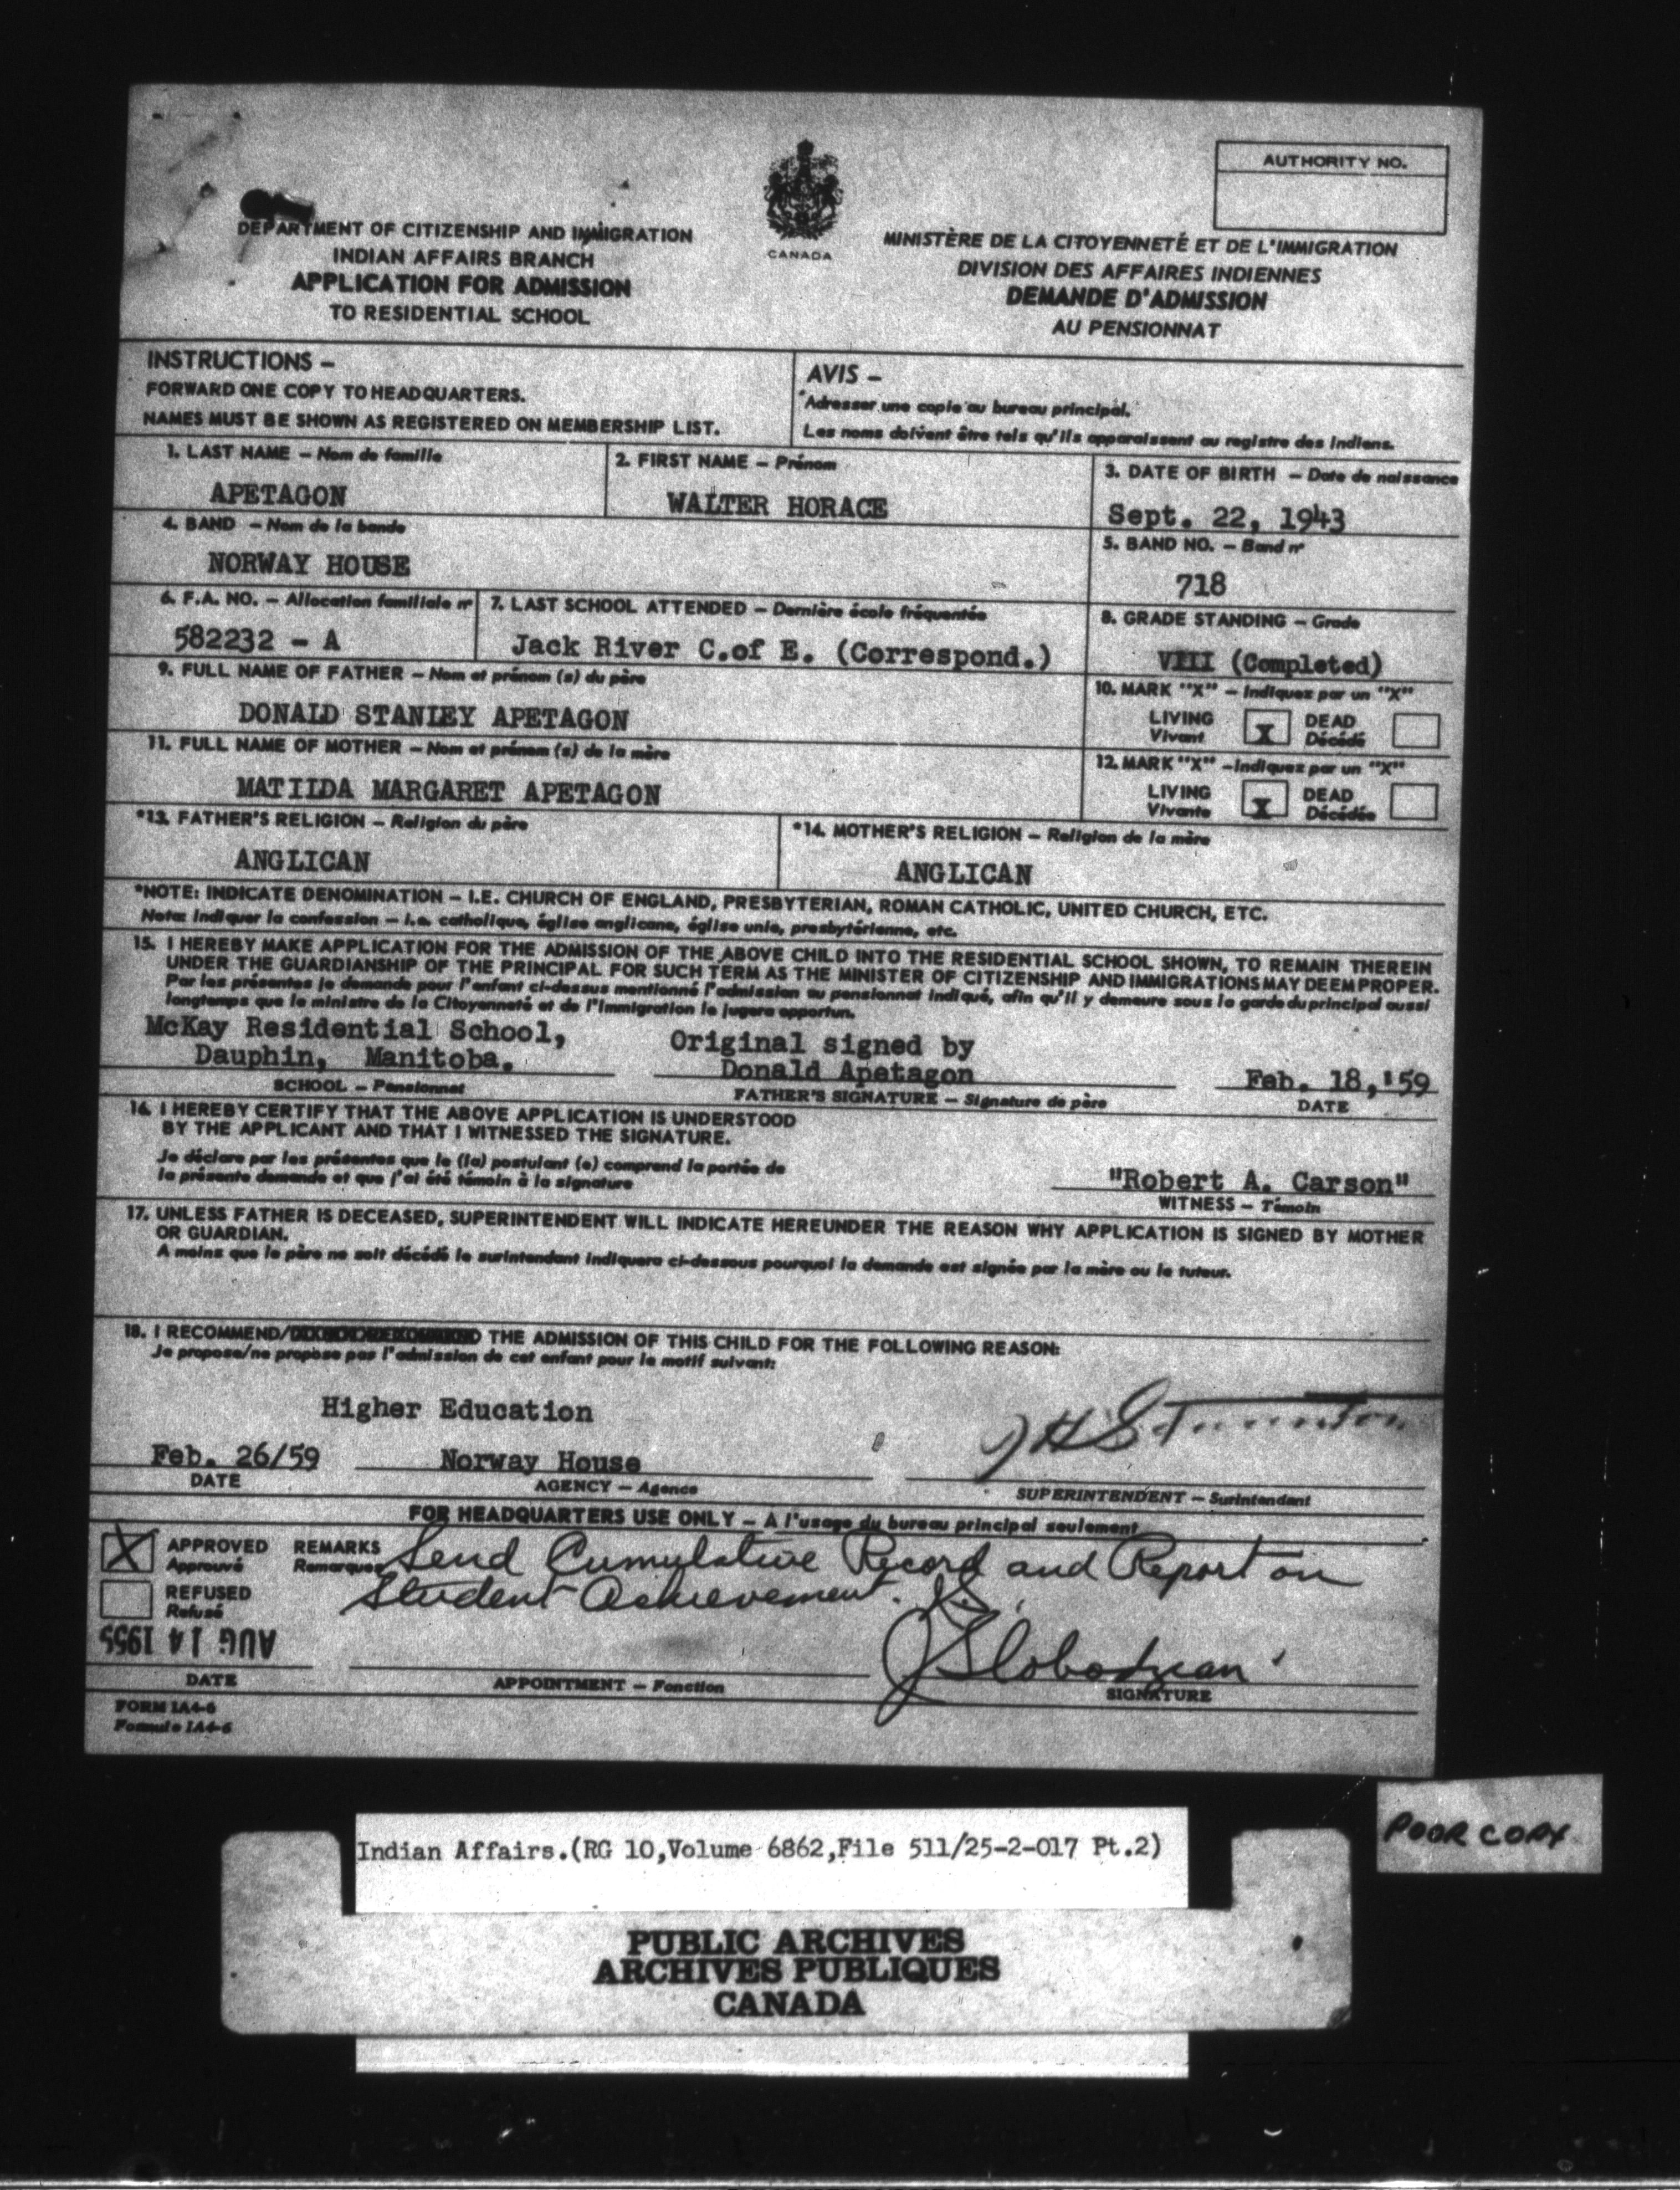 AUTHORITY NO.
CANADA
DEPARTMENT OF CITIZENSHIP AND IMMIGRATION
INDIAN AFFAIRS BRANCH
APPLICATION FOR ADMISSION
TO RESIDENTIAL SCHOOL
MINISTÈRE DE LA CITOYENNETÉ ET DE L'IMMIGRATION
DIVISION DES AFFAIRES INDIENNES
DEMANDE D'ADMISSION
AU PENSIONNAT
INSTRUCTIONS –
FORWARD ONE COPY TO HEADQUARTERS.
NAMES MUST BE SHOWN AS REGISTERED ON MEMBERSHIP LIST.
AVIS –
Adresser une copie au bureau principal.
Les noms doivent être tels qu'ils apparaissent au registre des Indiens.
1. LAST NAME – Nom de famille
APETAGON
2. FIRST NAME – Prénom
WALTER HORACE
3. DATE OF BIRTH – Date de naissance
Sept. 22, 1943
4. BAND – Nom de la bande
NORWAY HOUSE
5. BAND NO. – Band nº
718
6. F.A. NO. – Allocation familiale nº
582232 - A
7. LAST SCHOOL ATTENDED – Dernière école fréquentée
Jack River C.of E. (Correspond.)
8. GRADE STANDING – Grade
VIII (Completed)
9. FULL NAME OF FATHER – Nom et prénom (s) du père
DONALD STANLEY APETAGON
10. MARK "X" – Indiquez par un "X"
LIVING X DEAD
Vivant Décédé
11. FULL NAME OF MOTHER – Nom et prénom (s) de la mère
MATILDA MARGARET APETAGON
12. MARK "X" – Indiquez par un "X"
LIVING X DEAD
Vivante Décédée
*13. FATHER'S RELIGION – Religion du père
ANGLICAN
*14. MOTHER'S RELIGION – Religion de la mère
ANGLICAN
*NOTE: INDICATE DENOMINATION – I.E. CHURCH OF ENGLAND, PRESBYTERIAN, ROMAN CATHOLIC, UNITED CHURCH, ETC.
Nota: Indiquer la confession – i.e. catholique, église anglicane, église unie, presbytérienne, etc.
15. I HEREBY MAKE APPLICATION FOR THE ADMISSION OF THE ABOVE CHILD INTO THE RESIDENTIAL SCHOOL SHOWN, TO REMAIN THEREIN
UNDER THE GUARDIANSHIP OF THE PRINCIPAL FOR SUCH TERM AS THE MINISTER OF CITIZENSHIP AND IMMIGRATIONS MAY DEEM PROPER.
Par les présentes je demande pour l'enfant ci-dessus mentionné l'admission au pensionnat indiqué, afin qu'il y demeure sous la garde du principal aussi
longtemps que le ministre de la Citoyenneté et de l'Immigration le jugera opportun.
McKay Residential School,
Dauphin, Manitoba.
SCHOOL – Pensionnat
Original signed by
Donald Apetagon
FATHER'S SIGNATURE – Signature de père
Feb. 18,'59
DATE
16. I HEREBY CERTIFY THAT THE ABOVE APPLICATION IS UNDERSTOOD
BY THE APPLICANT AND THAT I WITNESSED THE SIGNATURE.
Je déclare par les présentes que le (la) postulant (e) comprend la portée de
la présente demande et que j'ai été témoin à la signature
"Robert A. Carson"
WITNESS – Témoin
17. UNLESS FATHER IS DECEASED, SUPERINTENDENT WILL INDICATE HEREUNDER THE REASON WHY APPLICATION IS SIGNED BY MOTHER
OR GUARDIAN.
A moins que le père ne soit décédé le surintendant indiquera ci-dessous pourquoi la demande est signée par la mère ou le tuteur.
18. I RECOMMEND/ THE ADMISSION OF THIS CHILD FOR THE FOLLOWING REASON:
Je propose/ne propose pas l'admission de cet enfant pour le motif suivant:
Higher Education
Feb. 26/59
DATE
Norway House
AGENCY – Agence
SUPERINTENDENT – Surintendant
FOR HEADQUARTERS USE ONLY – A l'usage du bureau principal seulement
X APPROVED
Approuvé
REMARKS
Remarques
Send Cumulative Record and Report on
Student Achievement.
REFUSED
Refusé
AUG 14 1959
DATE
APPOINTMENT – Fonction
J Slobodzian
SIGNATURE
FORM IA4-6
Formule IA4-6
POOR COPY
Indian Affairs.(RG 10,Volume 6862,File 511/25-2-017 Pt.2)
PUBLIC ARCHIVES
ARCHIVES PUBLIQUES
CANADA